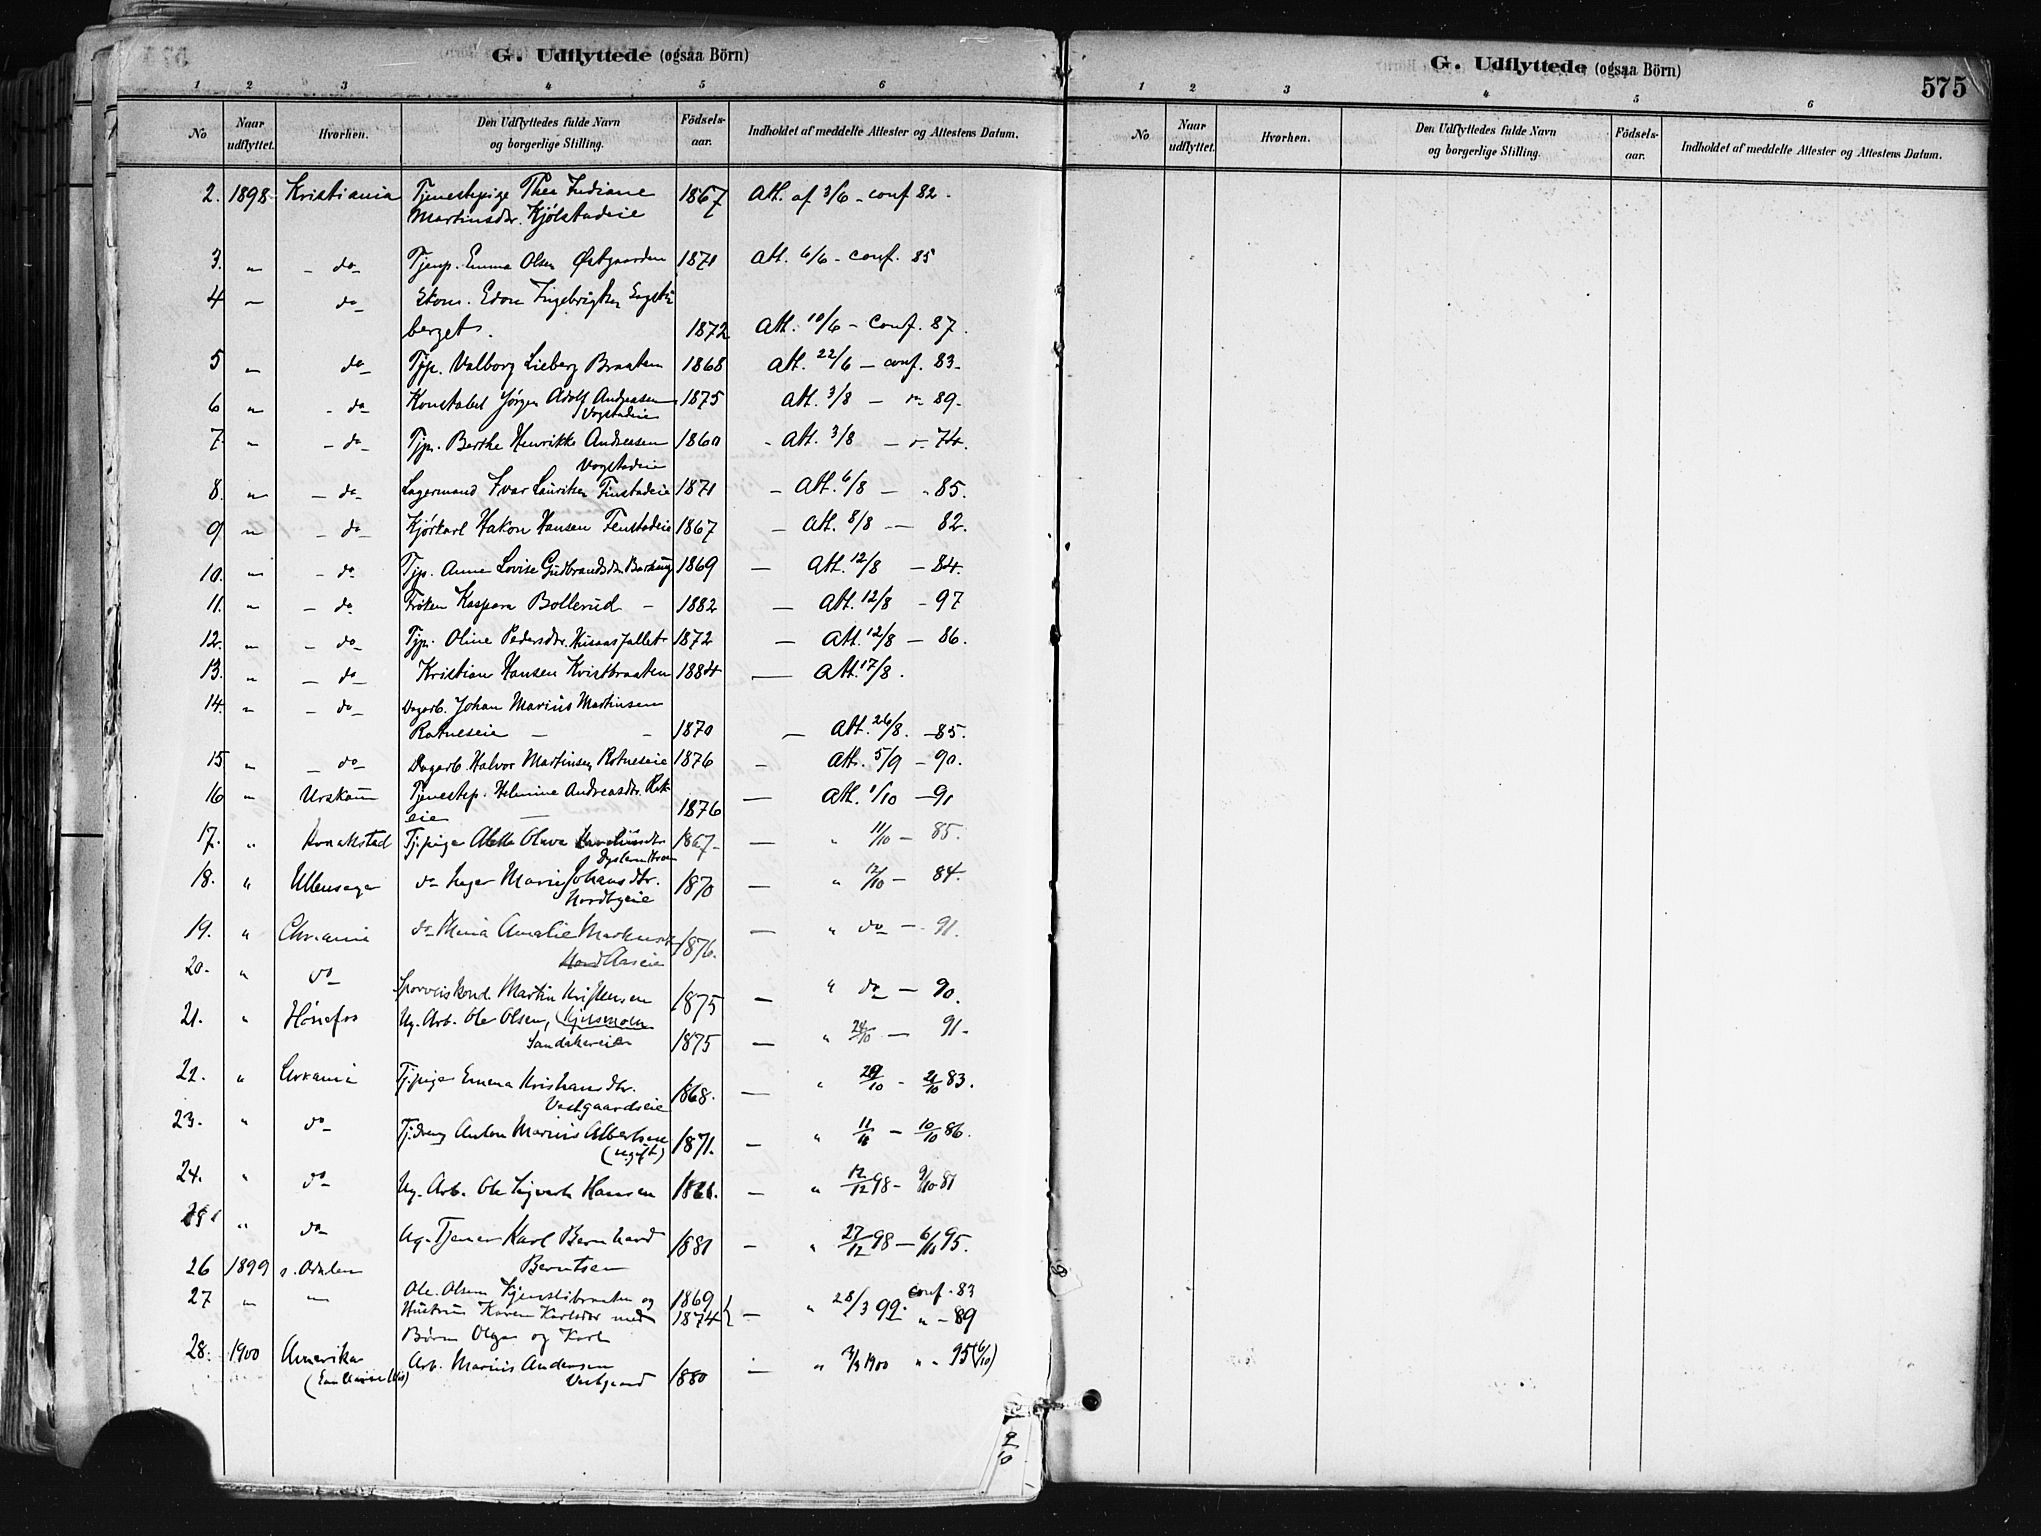 G. Udflyttede (ogsaa Börn)
1 2 3 4 5 6
No Naar udflyttet. Hvorhen. Den Udflyttedes fulde Navn og borgerlige Stilling. Födsels-aar. Indholdet af meddelte Attester og Attestens Datum.
2. 1898 Kristiania Tjenestepige Thea Indiane 1867 Att. af 3/6 - conf 82.
Martinsdtr. Kjölstadeie
3. " - do - Tjenp. Emma Olsen Østgaarden 1871 Att. 6/6 - conf. 85
4 " do Skom. Edon Ingebrigtsen
berget. 1872 Att. 10/6 - Conf. 87.
5 " do Tjp. Valborg Lieberg Braaten 1868 Att. 22/6 - conf. 83.
6 " - do Konstabel Jörgen Adolf Andreasen 1875 Att. 3/8 - " 89.
Vogstadeie
7. " - do Tjp. Berthe Henrikke Andreasen 1860 - Att. 3/8 - " 74.
Vogstadeie
8. " - do Lagermand Ivar Lauritsen Finstadeie 1871 - Att. 6/8 - " 85.
9 " - do Kjørkarl Hakon Hansen Finstadeie 1867 - Att. 8/8 - 82.
10. " - do Tjp. Anne Lovise Gudbrandsdtr. 1869 - Att. 12/8 - 84.
11. " - do Frøken Kaspara Bollerud - 1882 - Att. 12/8 - 97
12. " - do Tjp. Oline Pedersdtr. 1872 - Att. 12/8 - 86.
13. " - do Kristian Hansen Kvistbraaten 1884 - Att. 17/8.
14. " - do - Dagarb. Johan Marius Martinsen
Rotneseie - - 1870 - Att. 26/8. - 85.
15 " - do - Dagarb. Halvor Martinsen Rotneseie 1876 - Att. 5/9 - 90.
16 " Urskoug Tjenestep. Helmine Andreasdtr. 1876 - Att. 1/10 - 91
eie -
17. " Kraakstad Tj.pige Alette Olava 1867 - " 11/10 - 85.
18. " Ullensager do Inger Marie Johansdtr. 1870 - " 12/10 - 84.
Nordbyeie
19. " Chrania do Mina Amalie 1876. - " do - 91.
Aaseie
20. " do Sporveiskond. Martin Kristensen 1875 - " do - 90.
21. " Hönefos Ug. Arb. Ole Olsen, 1875 - " 24/10 - 91.
Sandakereie
22. " Chrania Tj.pige Emma Kristiansdtr. 1868. - " 29/10 - 21/10 83.
Vestgaardseie
23. " do Tj.dreng Anton Marius Albertsen 1871. - " 11/10 - 10/10 86.
(ugift)
24. " do Ug. Arb. Ole Sigvart Hansen - " 12/12 98 - 9/10 81
25 " do Ug. Tjener Karl Bernhard 1881 - " 27/12 98 - 6/10 95.
Berntsen
26 1899 s. Odalen
27 " " Ole Olsen Kjenslibraaten og 1869 - " 28/3 99. conf. 83
Hustru Karen Karlsdtr med 1874 " - 89
Børn Olga og Karl
28. 1900 Amerika Arb. Marius Andersen 1880 - " 3/3 1900 " " 95 (6/10)
Vestgaard
9/10
G. Udflyttede (ogsaa Börn)
575
1 2 3 4 5 6
No Naar udflyttet. Hvorhen. Den Udflyttedes fulde Navn og borgerlige Stilling. Födsels-aar. Indholdet af meddelte Attester og Attestens Datum.